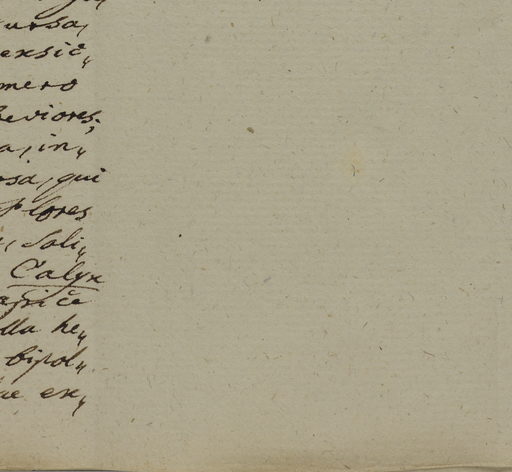 ursa,
exsic„
mero
beviores;
a, in„
rsa, qui
Flores
, Soli„
Calyx
apice
lla he„
bipol„
ae ex„